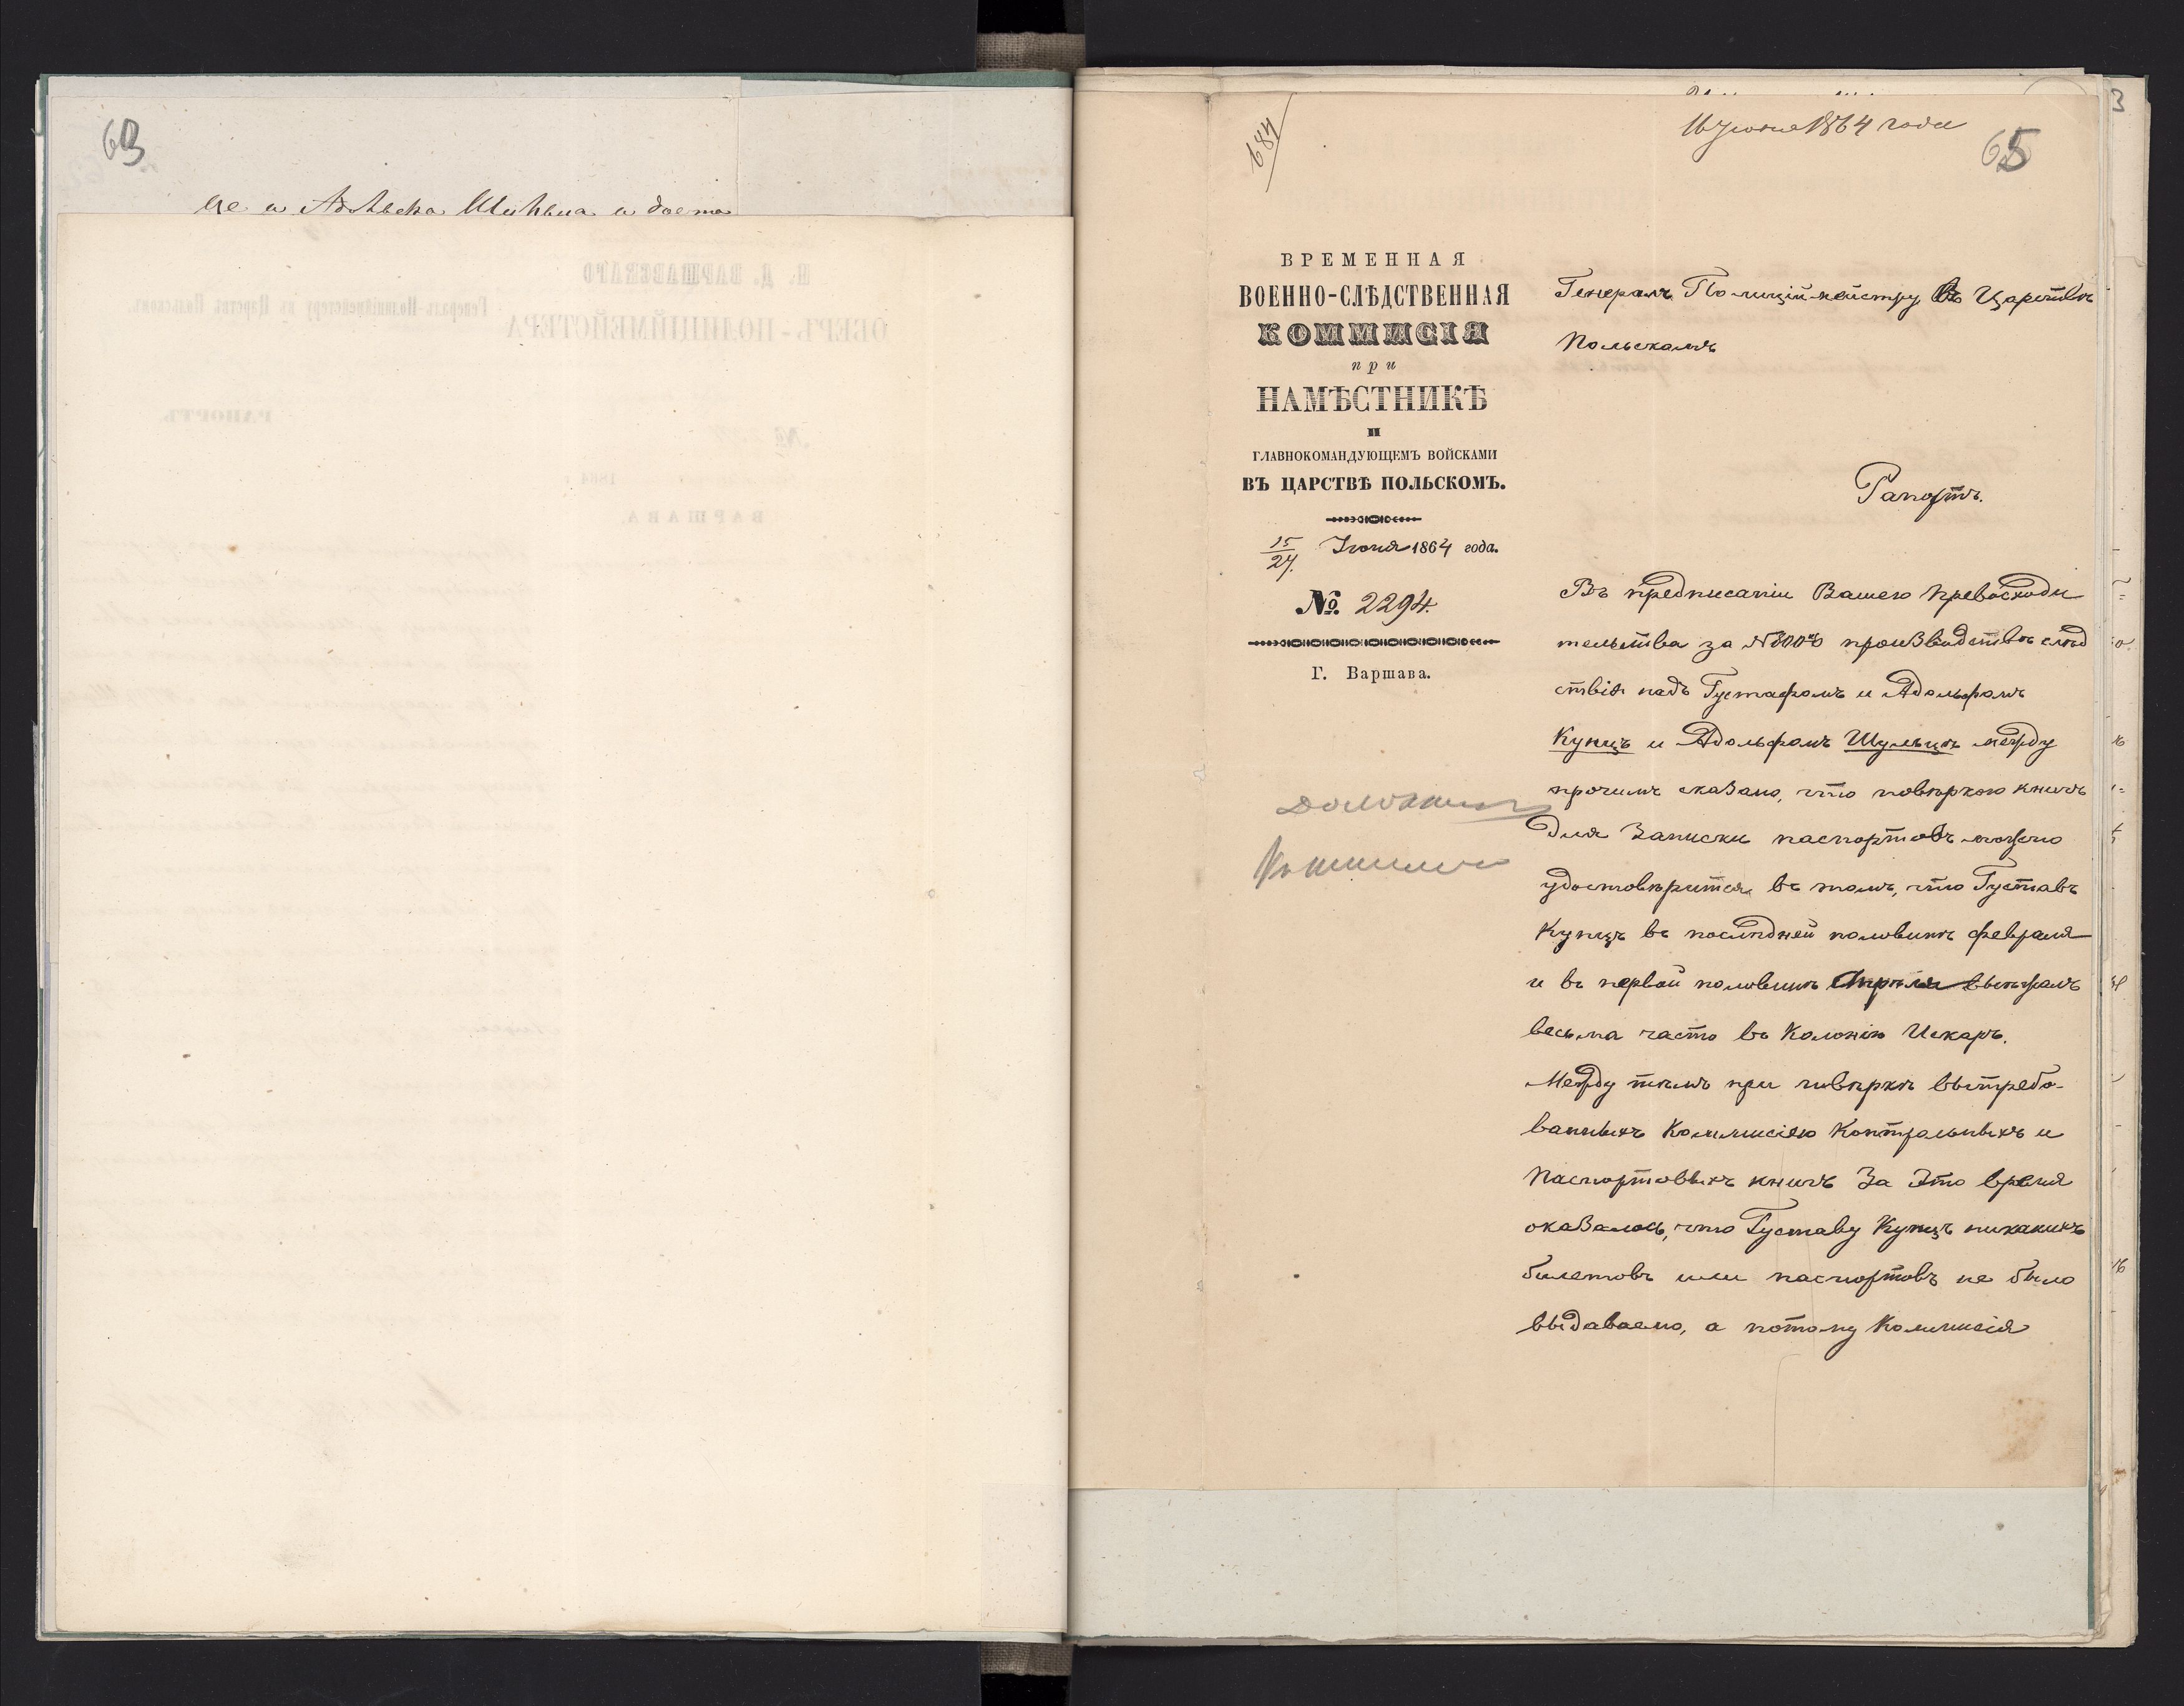 63
не и Адольфа Шульца и доста
684
16 Июня 1864 года
65
ВРЕМЕННАЯ
ВОЕННО-СЛѢДСТВЕННАЯ
КОММИСІЯ
при
НАМѢСТНИКѢ
И
ГЛАВНОКОМАНДУЮЩЕМЪ ВОЙСКАМИ
ВЪ ЦАРСТВѢ ПОЛЬСКОМЪ.
15/27. Іюня 1864 года.
№. 2294.
Г. Варшава.
Генералъ Полиціймейстру въ Царствѣ
Польскомъ
Рапортъ.
Въ предписаніи Вашего Превосходи
тельства за № производствѣ слѣд
ствія надъ Густафомъ и Адольфомъ
Кунцъ и Адольфомъ Шульцъ между
прочимъ сказано, что повѣркою книгъ
для записки паспортовъ можно
удостовѣрится въ томъ, что Густавъ
Кунцъ въ послѣдней половинѣ февраля
и въ первой половинѣ Апрѣля выѣзжалъ
весьма часто въ Колонію Искаръ.
Между тѣмъ при повѣркѣ вытребо-
ванныхъ Коммисіею Контрольныхъ и
Паспортовыхъ книгъ за это время
оказалось, что Густаву Кунцъ никакихъ
билетовъ или паспортовъ не было
выдаваемо, а потому Коммисія
Доложить
3